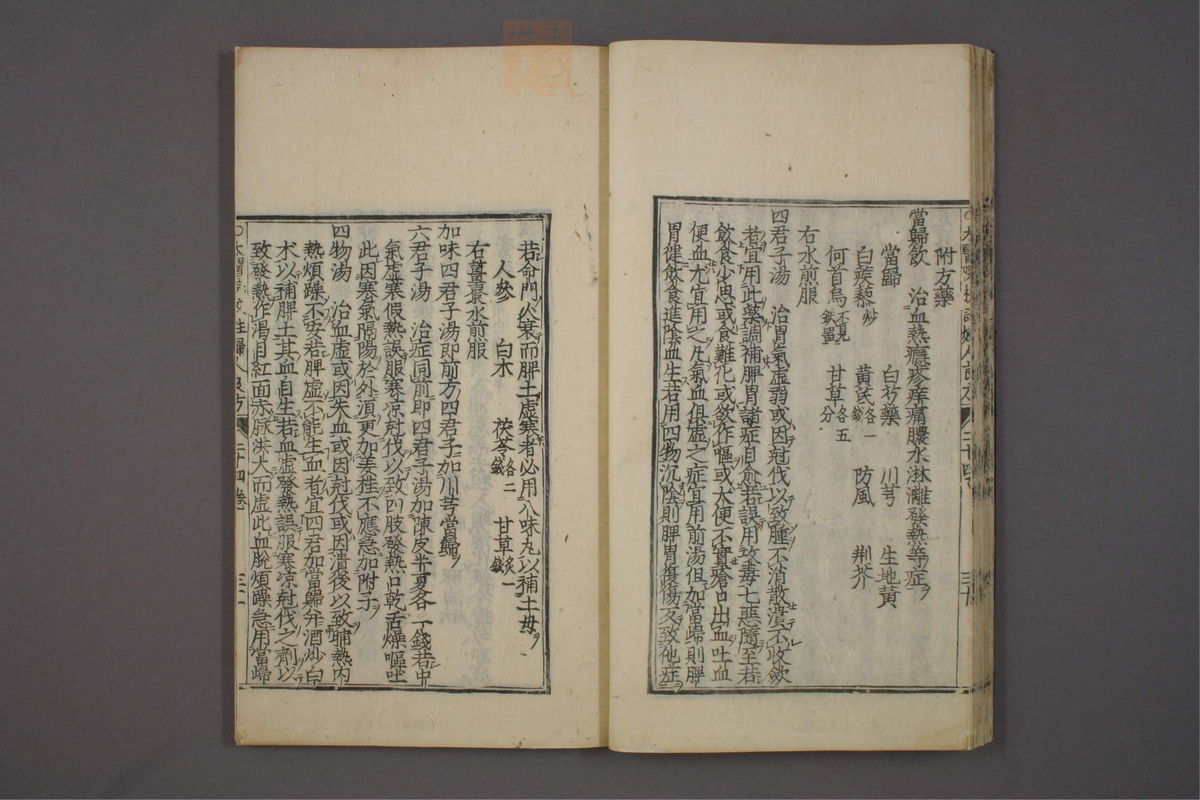 附方藥
當歸飲　治血熱癮疹痒痛膿水淋漓發熱等症ヲ
當歸　白芍藥　川芎　生地黄
白蒺藜炒　黄芪各一錢　防風　荆芥
何首烏不見鉄置　甘草各五分
右水煎服
四君子湯　治胃氣虚弱或因尅伐以致腫不消散潰不收歛
者宜用此藥調補脾胃諸症自愈若誤用攻毒七惡隨至若
飲食少思或食難化或欲作嘔或大便不實瘡口出血吐血
便血尤宜用之凡氣血俱虚之症宜用前湯但加當歸則脾
胃健飲食進陰血生若用四物沉陰則脾胃復傷反致他症
若命門火衰而脾土虚寒者必用八味丸以補土母ヲ
人參　白朮　茯苓各二錢　甘草炙一錢
右薑棗水煎服
加味四君子湯即前方四君子加川芎當歸ヲ
六君子湯　治症同前即四君子湯加陳皮半夏各一錢若中
氣虚寒假熱誤服寒凉尅伐以致四肢發熱口乾舌燥嘔吐
此因寒氣隔陽於外須更加姜桂不應急加附子
四物湯　治血虚或因失血或因尅伐或因潰後以致晡熱内
熱煩躁不安若脾虚不能生血者宜四君加當歸并酒炒白
朮以補脾土其血自生若血虚發熱誤服寒凉尅伐之劑以
致發熱作渇目紅面赤脉洪大而虚此血脱煩躁急用當歸
二十四卷